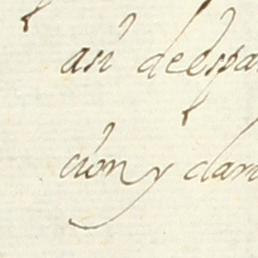 asi deespa
cion y clam